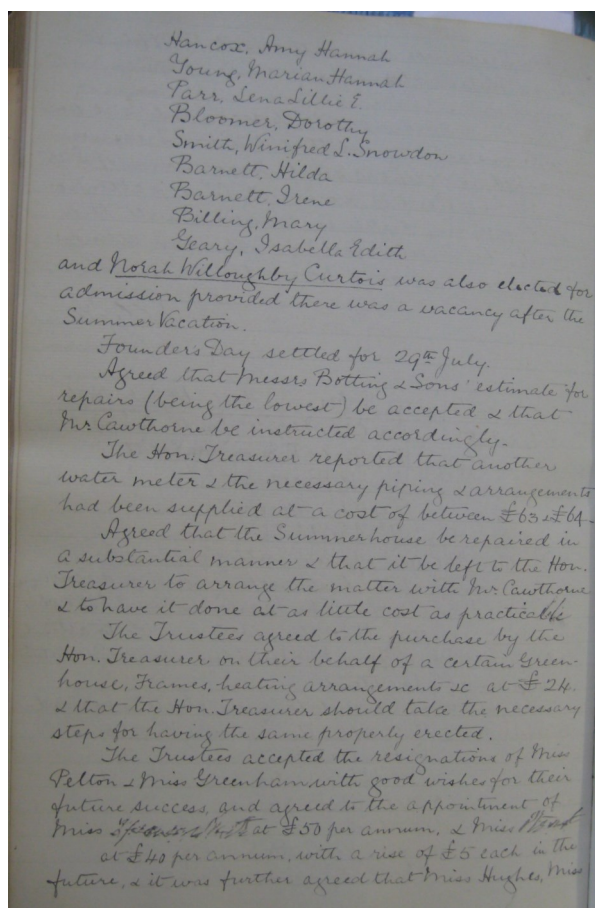 Hancox, Amy Hannah
Young, Marian Hannah
Parr, Lena Lillie E.
Bloomer, Dorothy
Smith, Winifred L. Snowdon
Barnett, Hilda
Barnett, Irene
Billing, Mary
Geary, Isabella Edith
and Norah Willoughby Curtois was also elected for
admission provided there was a vacancy after the
Summer Vacation.
Founder's Day settled for 29th July.
Agreed that Messrs Botting & Sons' estimate for
repairs (being the lowest) be accepted & that
Mr. Cawthorne be instructed accordingly.
The Hon. Treasurer reported that another
water meter & the necessary piping & arrangements
had been supplied at a cost of between £63 & £64.
Agreed that the Summerhouse be repaired in
a substantial manner & that it be left to the Hon.
Treasurer to arrange the matter with Mr. Cawthorne
& to have it done at as little cost as practicable
The Trustees agreed to the purchase by the
Hon. Treasurer on their behalf of a certain Green-
house, Frames, heating arrangements &c at £24.
& that the Hon. Treasurer should take the necessary
steps for having the same properly erected.
The Trustees accepted the resignations of Miss
Pelton & Miss Greenham, with good wishes for their
future success, and agreed to the appointment of
Miss at £50 per annum, & Miss
at £40 per annum, with a rise of £5 each in the
future, & it was further agreed that Miss Hughes, Miss